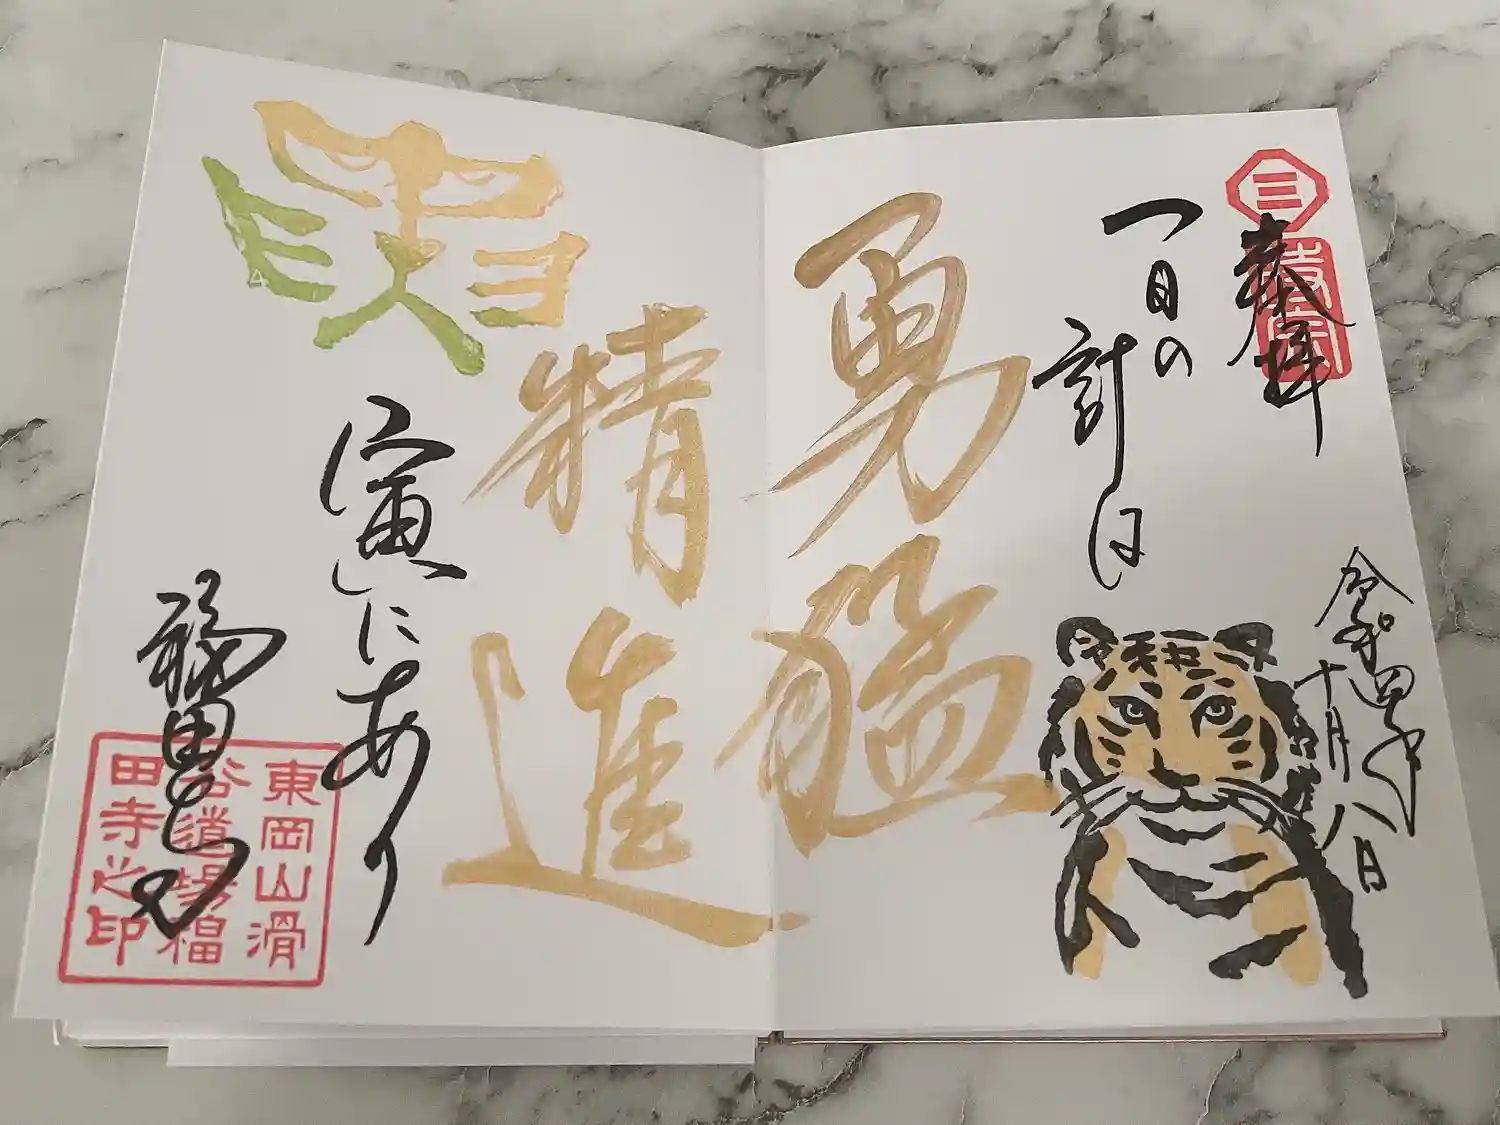 三
時宗
奉拝
令和四年
十月八日
一日の計は
勇猛
精進
寅にあり
福田寺
東岡山滑
谷道場福
田寺之印